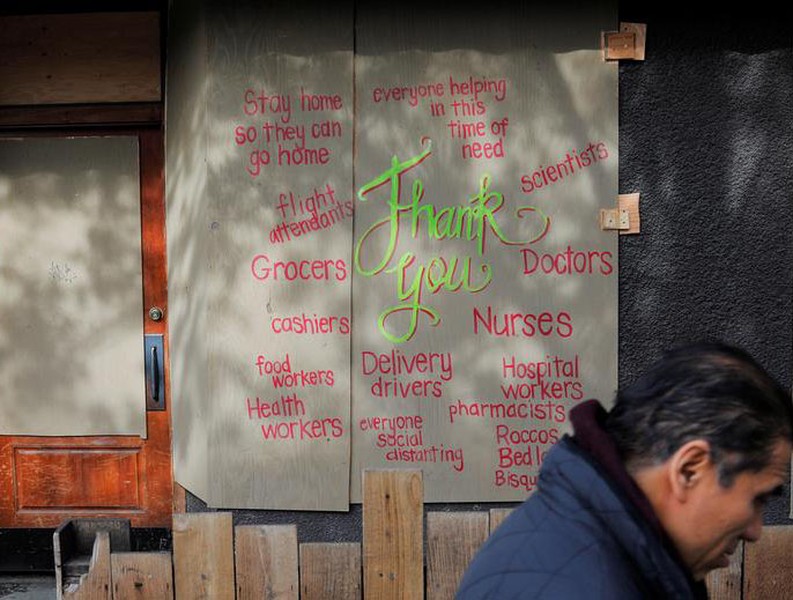 Stay home
so they can
go home
everyone helping
in this
time of
need
scientists
flight
attendants
Thank
you
Grocers
Doctors
cashiers
Nurses
food
workers
Delivery
drivers
Hospital
workers
Health
workers
pharmacists
everyone
social
distanting
Roccos